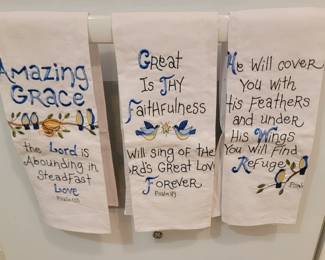 Amazing
Grace
the Lord is
Abounding in
Steadfast
Love
Great
Is Thy
Faithfulness
will sing of the
Lord's Great Love
Forever
He will cover
You with
His Feathers
and under
His Wings
You will Find
Refuge